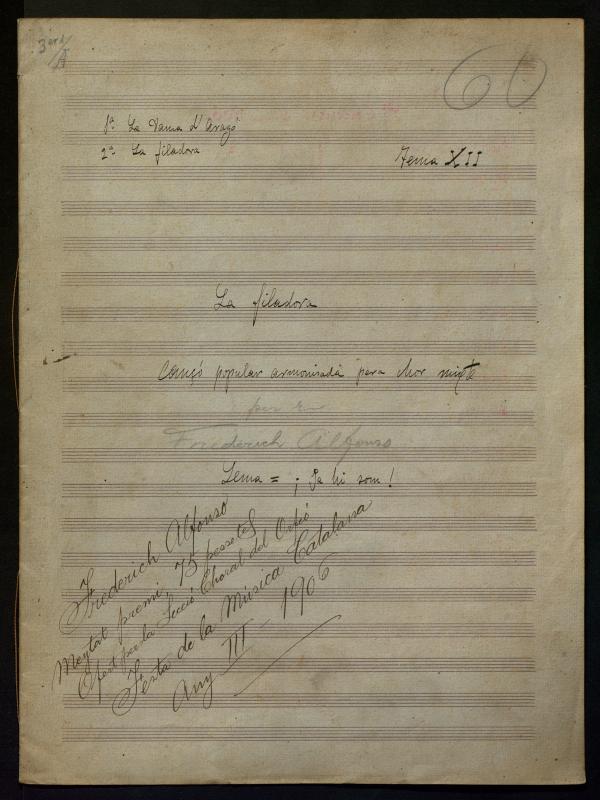 3era/A
60
1ª La Dama d'Aragó
2ª La filadora
Tema XII
La filadora
Cançó popular armonisada para chor mixte
per En
Frederich Alfonso
Lema = ¡Ja hi som!
Frederich Alfonso
Meytat premi 75 pessetes
Ofert per la Secció Choral del Orfeó
Festa de la Música Catalana
Any III 1906